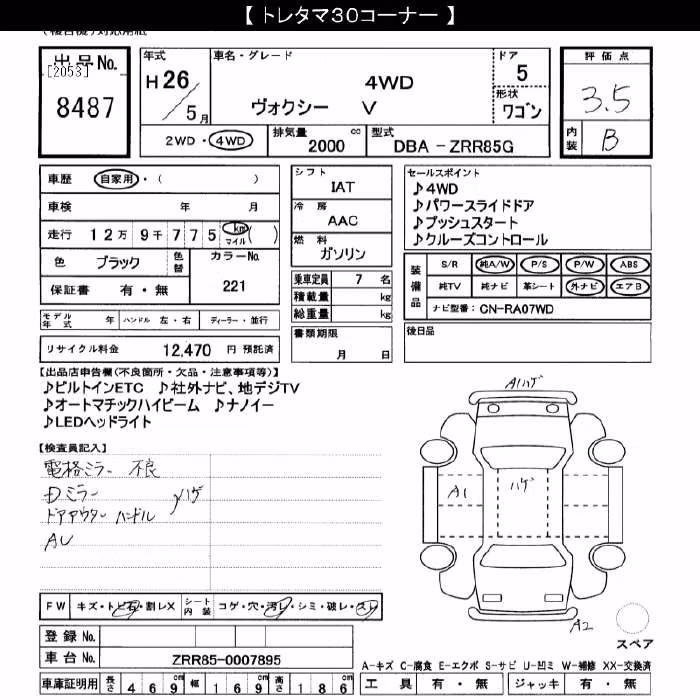 【 トレタマ30コーナー 】
(複合機)対応用紙
出品No.
[2053]
8487
年式
H26
5月
車名・グレード
4WD
ヴォクシー V
ドア
5
形状
ワゴン
評価点
3.5
内装
B
2WD・4WD
排気量 2000 cc
型式 DBA-ZRR85G
車歴 自家用・( )
車検 年 月
走行 12万9千775 km マイル ( )
色 ブラック 色替 カラーNo.
保証書 有・無 221
モデル年式 年 ハンドル 左・右 ディーラー・並行
リサイクル料金 12,470 円 預託済
シフト
IAT
冷房
AAC
燃料
ガソリン
乗車定員 7 名
積載量 kg
総重量 kg
書類期限
月 日
セールスポイント
♪4WD
♪パワースライドドア
♪プッシュスタート
♪クルーズコントロール
装備品
S/R 純A/W P/S P/W ABS
純TV 純ナビ 革シート 外ナビ エアB
ナビ型番: CN-RA07WD
後日品
【出品店申告欄(不良箇所・欠品・注意事項等)】
♪ビルトインETC ♪社外ナビ、地デジTV
♪オートマチックハイビーム ♪ナノイー
♪LEDヘッドライト
【検査員記入】
電格ミラー 不良
Dミラー
ドアアウターハンドル ハゲ
AU
A1ハゲ
A1
ハゲ
A2
スペア
FW キズ・トビ石・割レX シート内装 コゲ・穴・汚レ・シミ・破レ・スレ
登録No.
車台No. ZRR85-0007895
車庫証明用 長さ 469 cm 幅 169 cm 高さ 186 cm
A-キズ C-腐食 E-エクボ S-サビ U-凹ミ W-補修 XX-交換済
工具 有・無 ジャッキ 有・無